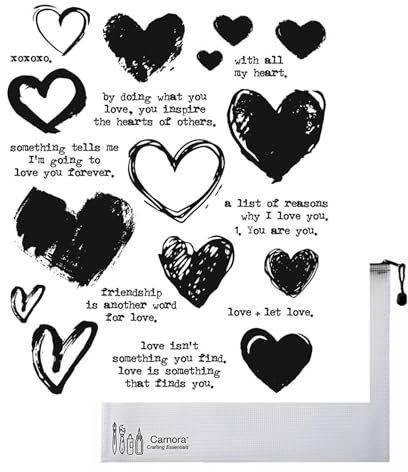 xoxoxo.
with all
my heart.
by doing what you
love, you inspire
the hearts of others.
something tells me
I'm going to
love you forever.
a list of reasons
why I love you.
1. You are you.
friendship
is another word
for love.
love + let love.
love isn't
something you find.
love is something
that finds you.
Carnora®
Crafting Essentials